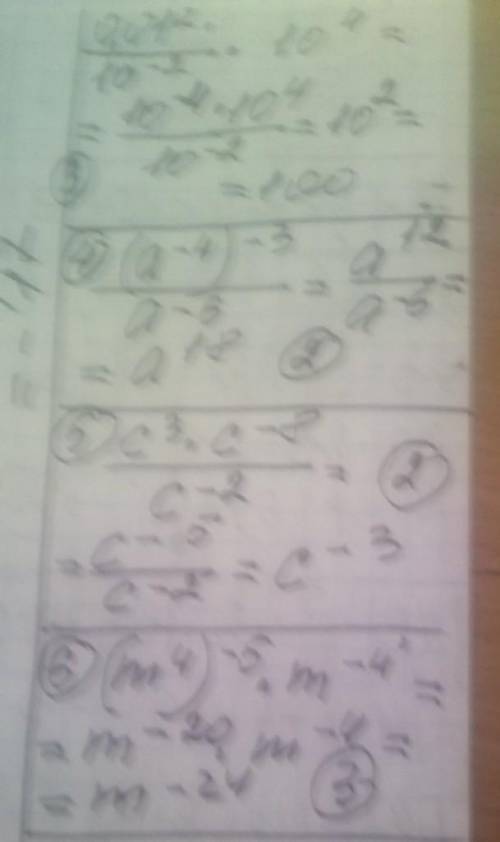 10⁻² · 10⁴ =
= 10⁻⁴ · 10⁴ / 10⁻² = 10² =
③ = 100
④ (a⁻⁴)⁻³ / a⁻⁵ = a¹² / a⁻⁵ =
= a¹⁸ ②
⑤ c³ · c⁻⁸ / c⁻² = ②
= c⁻⁵ / c⁻² = c⁻³
⑥ (m⁴)⁻⁵ · m⁻⁴ =
= m⁻²⁰ · m⁻⁴ =
= m⁻²⁴ ③